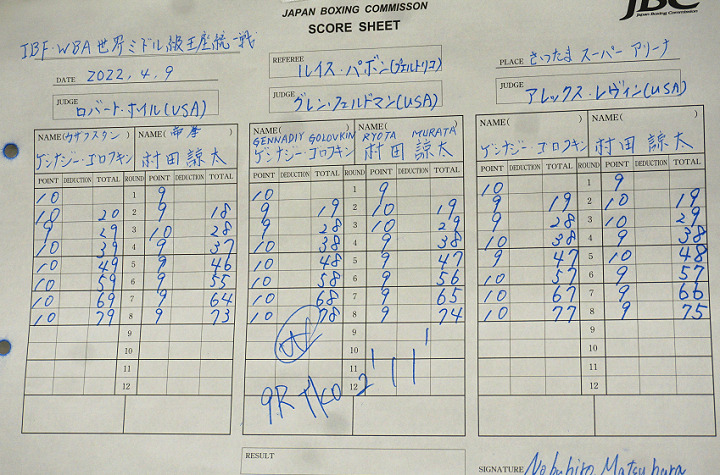 JAPAN BOXING COMMISSON
SCORE SHEET
JBC
Japan Boxing Commission
IBF・WBA世界ミドル級王座統一戦
DATE 2022.4.9
REFEREE ルイス・パボン(プエルトリコ)
PLACE さいたまスーパーアリーナ
JUDGE ロバート・ホイル(USA)
JUDGE グレン・フェルドマン(USA)
JUDGE アレックス・レヴィン(USA)
NAME(カザフスタン) NAME(帝拳) NAME( ) NAME( ) NAME( ) NAME( )
GENNADIY GOLOVKIN RYOTA MURATA
ゲンナジー・ゴロフキン 村田諒太 ゲンナジー・ゴロフキン 村田諒太 ゲンナジー・ゴロフキン 村田諒太
POINT DEDUCTION TOTAL ROUND POINT DEDUCTION TOTAL POINT DEDUCTION TOTAL ROUND POINT DEDUCTION TOTAL POINT DEDUCTION TOTAL ROUND POINT DEDUCTION TOTAL
10 1 9 10 1 9 10 1 9
10 20 2 9 18 9 19 2 10 19 9 19 2 10 19
9 29 3 10 28 9 28 3 10 29 9 28 3 10 29
10 39 4 9 37 10 38 4 9 38 10 38 4 9 38
10 49 5 9 46 10 48 5 9 47 9 47 5 10 48
10 59 6 9 55 10 58 6 9 56 10 57 6 9 57
10 69 7 9 64 10 68 7 9 65 10 67 7 9 66
10 79 8 9 73 10 78 8 9 74 10 77 8 9 75
9 9 9
10 10 10
11 11 11
12 12 12
9R TKO 2'11"
RESULT
SIGNATURE Nobuhiro Matsubara